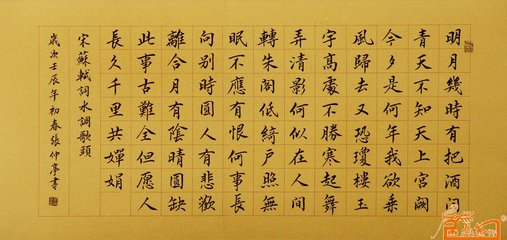 明月幾時有把酒问
青天不知天上宮闕
今夕是何年我欲乘
風歸去又恐瓊樓玉
宇高處不勝寒起舞
弄清影何似在人間
轉朱阁低綺戶照無
眠不應有恨何事長
向別時圓人有悲歡
離合月有陰晴圓缺
此事古難全但愿人
長久千里共嬋娟
宋蘇軾詞水調歌頭
歲次壬辰年初春張仲亭書